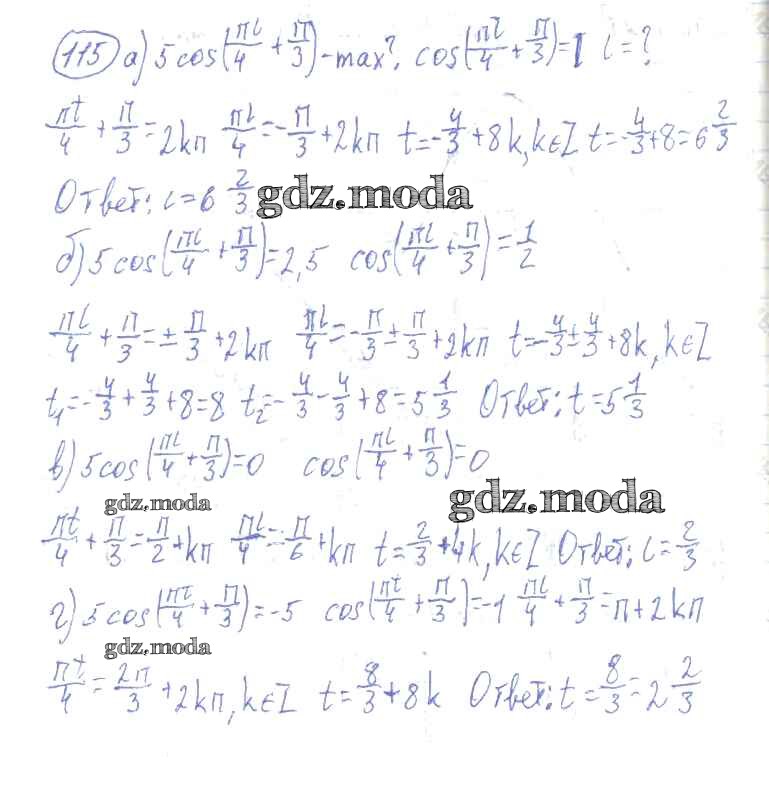 115 а) 5cos(πt/4 + π/3) - max?, cos(πt/4 + π/3) = 1 t = ?
πt/4 + π/3 = 2kπ πt/4 = -π/3 + 2kπ t = -4/3 + 8k, k∈Z t = -4/3 + 8 = 6 2/3
Ответ: t = 6 2/3 gdz.moda
б) 5cos(πt/4 + π/3) = 2,5 cos(πt/4 + π/3) = 1/2
πt/4 + π/3 = ± π/3 + 2kπ πt/4 = -π/3 ± π/3 + 2kπ t = -4/3 ± 4/3 + 8k, k∈Z
t₁ = -4/3 + 4/3 + 8 = 8 t₂ = -4/3 - 4/3 + 8 = 5 1/3 Ответ: t = 5 1/3
в) 5cos(πt/4 + π/3) = 0 cos(πt/4 + π/3) = 0
gdz.moda gdz.moda
πt/4 + π/3 = π/2 + kπ πt/4 = π/6 + kπ t = 2/3 + 4k, k∈Z Ответ: t = 2/3
г) 5cos(πt/4 + π/3) = -5 cos(πt/4 + π/3) = -1 πt/4 + π/3 = π + 2kπ
gdz.moda
πt/4 = 2π/3 + 2kπ, k∈Z t = 8/3 + 8k Ответ: t = 8/3 = 2 2/3